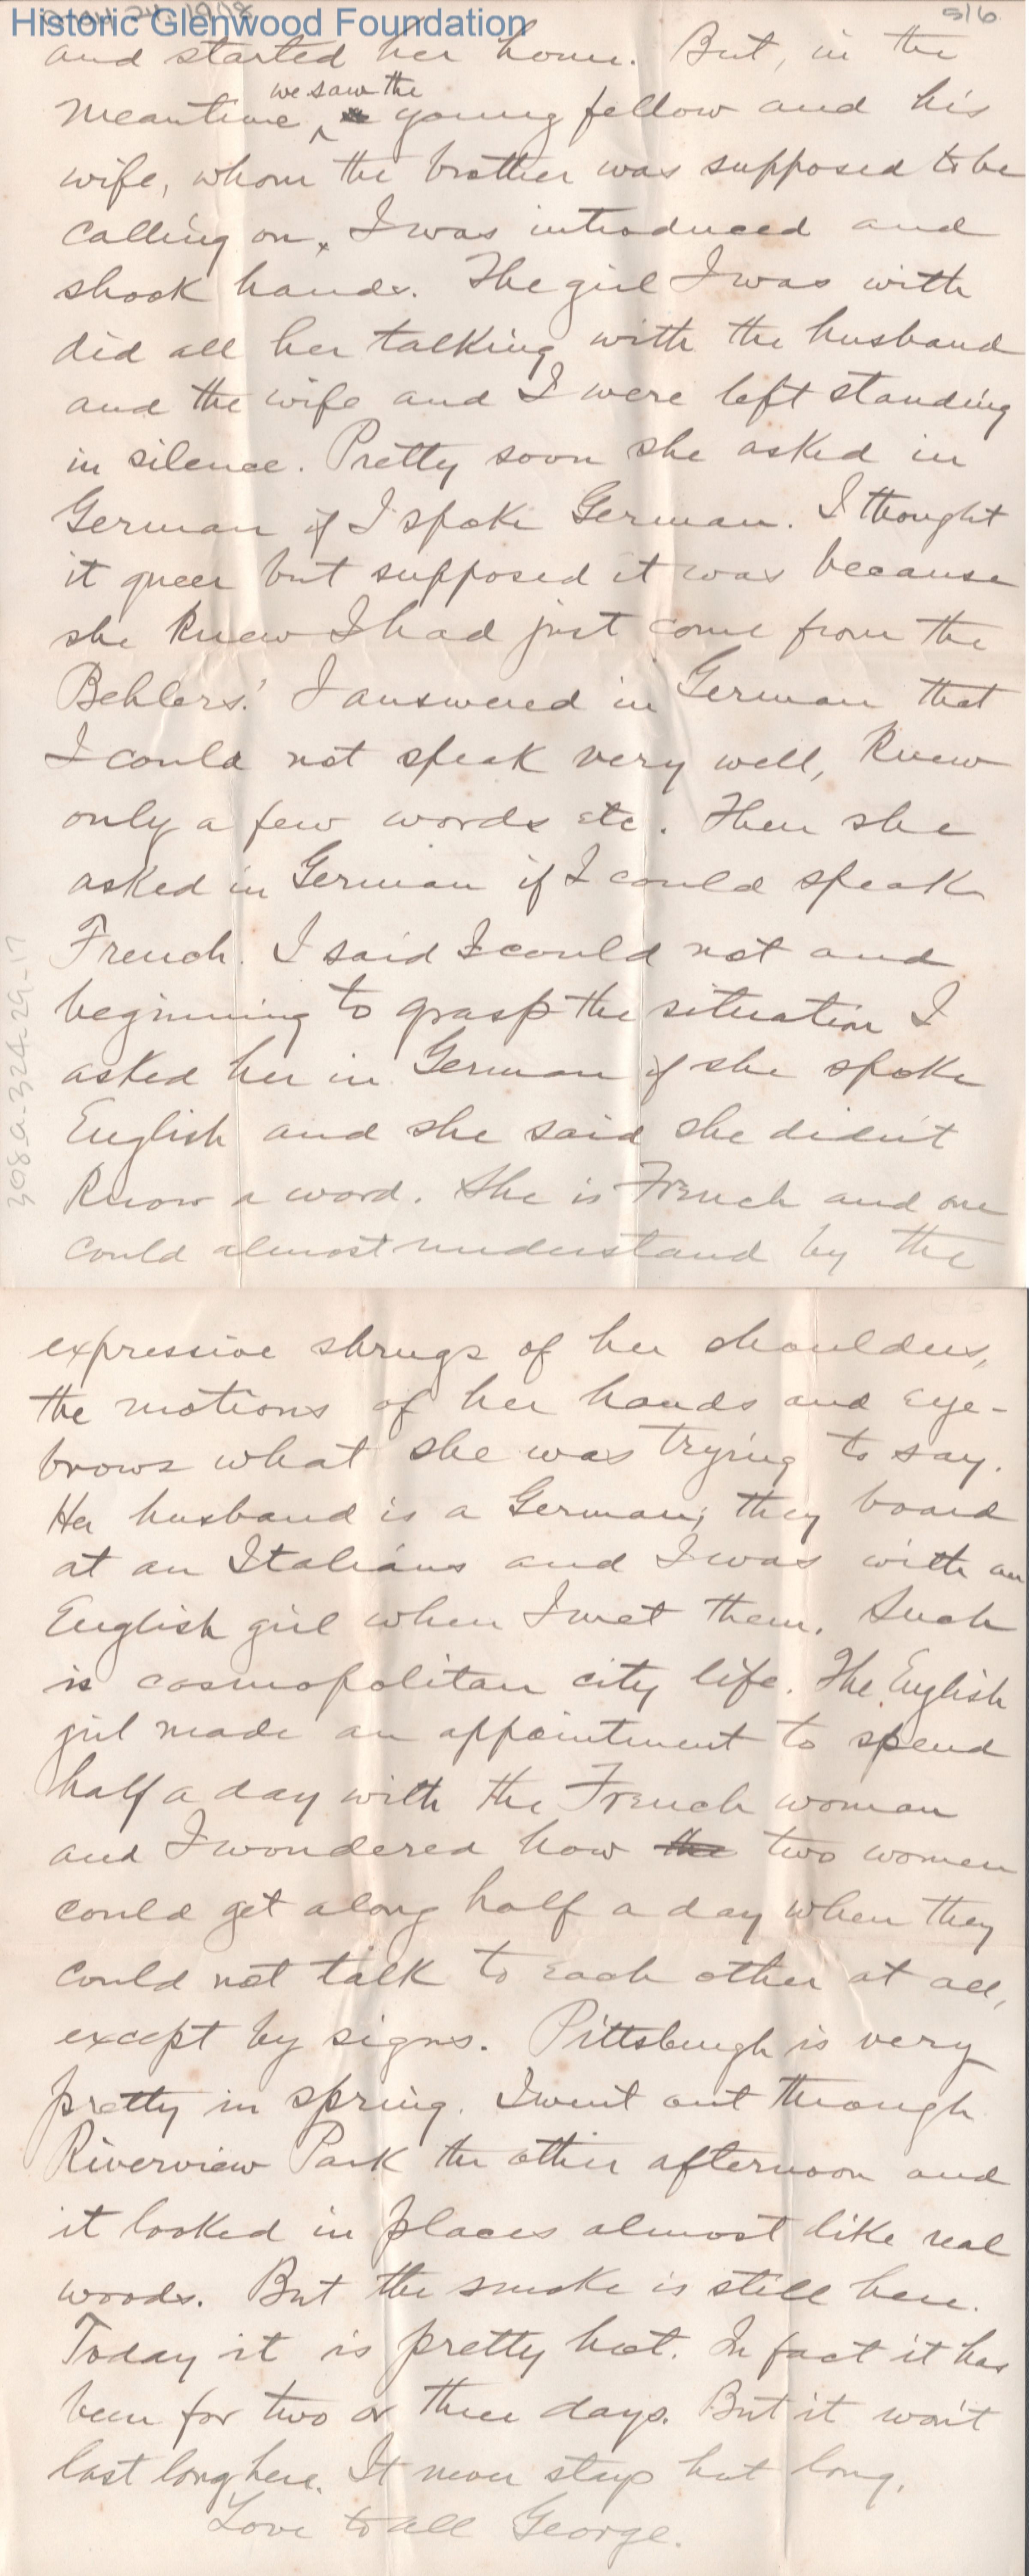 Historic Glenwood Foundation
5/6
and started her home. But, in the
we saw the
meantime, young fellow and his
wife, whom the brother was supposed to be
calling on, I was introduced and
shook hands. The girl I was with
did all her talking with the husband
and the wife and I were left standing
in silence. Pretty soon she asked in
German if I spoke German. I thought
it queer but supposed it was because
she knew I had just come from the
Behlers'. I answered in German that
I could not speak very well, knew
only a few words etc. Then she
asked in German if I could speak
French. I said I could not and
beginning to grasp the situation I
asked her in German if she spoke
English and she said she didn't
know a word. She is French and one
could almost understand by the
308-a-324-29-17
expressive shrugs of her shoulders,
the motions of her hands and eye-
brows what she was trying to say.
Her husband is a German; they board
at an Italians and I was with an
English girl when I met them. Such
is cosmopolitan city life. The English
girl made an appointment to spend
half a day with the French woman
and I wondered how the two women
could get along half a day when they
could not talk to each other at all,
except by signs. Pittsburgh is very
pretty in spring. I went out through
Riverview Park the other afternoon and
it looked in places almost like real
woods. But the smoke is still here.
Today it is pretty hot. In fact it has
been for two or three days. But it won't
last long here. It never stays hot long.
Love to all George.